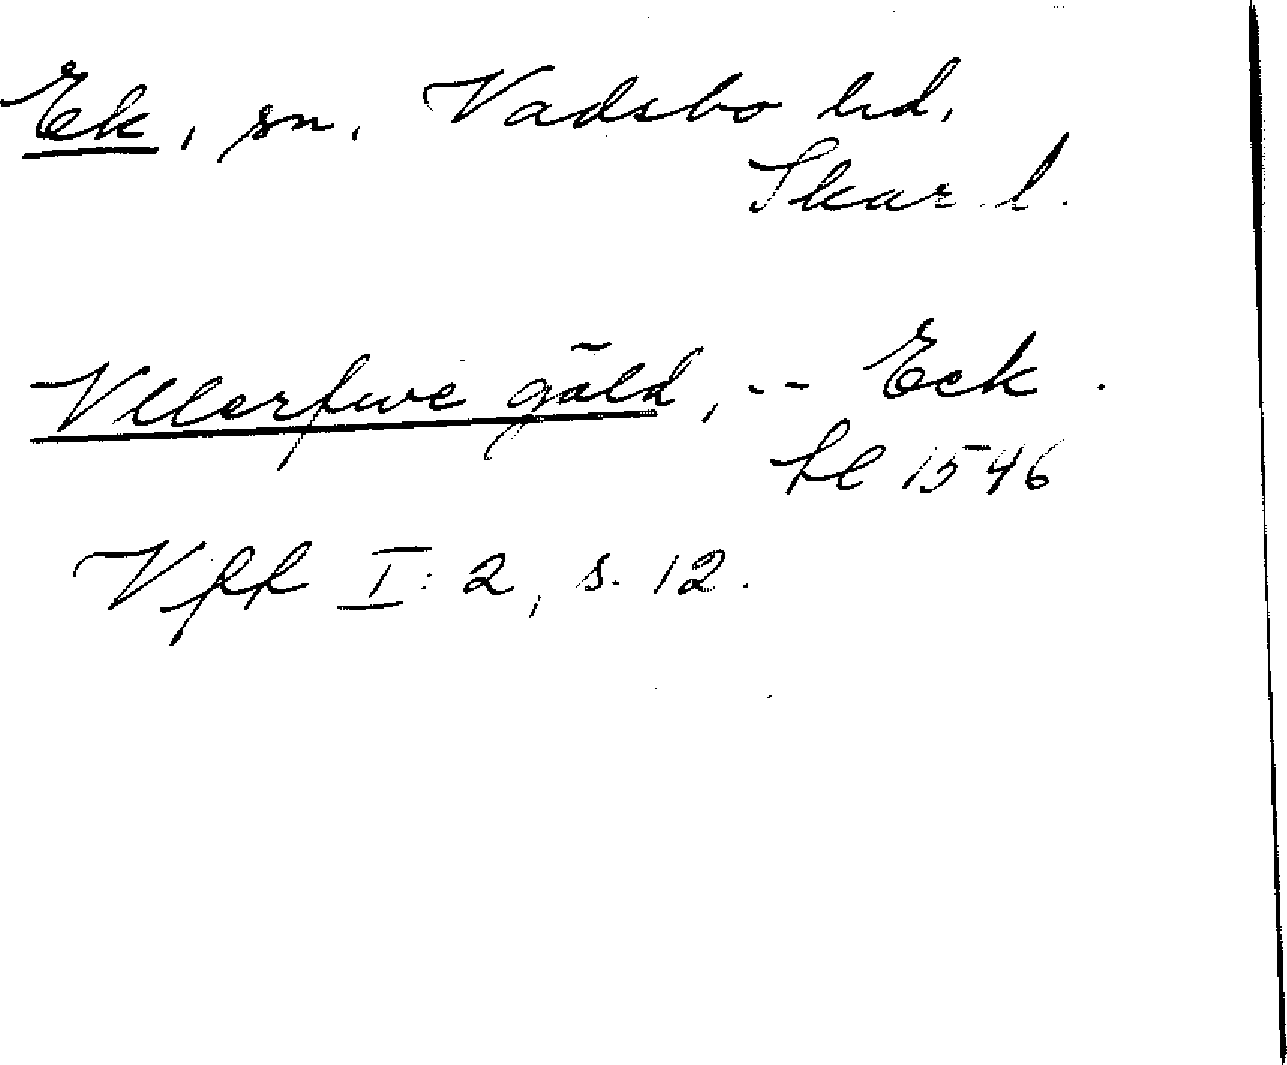 Ek, sn. Vadsbo hd,
Skar. l.
Vllerfwe gäld, -- Eck.
fl 1546
Vff I:2, s. 12.